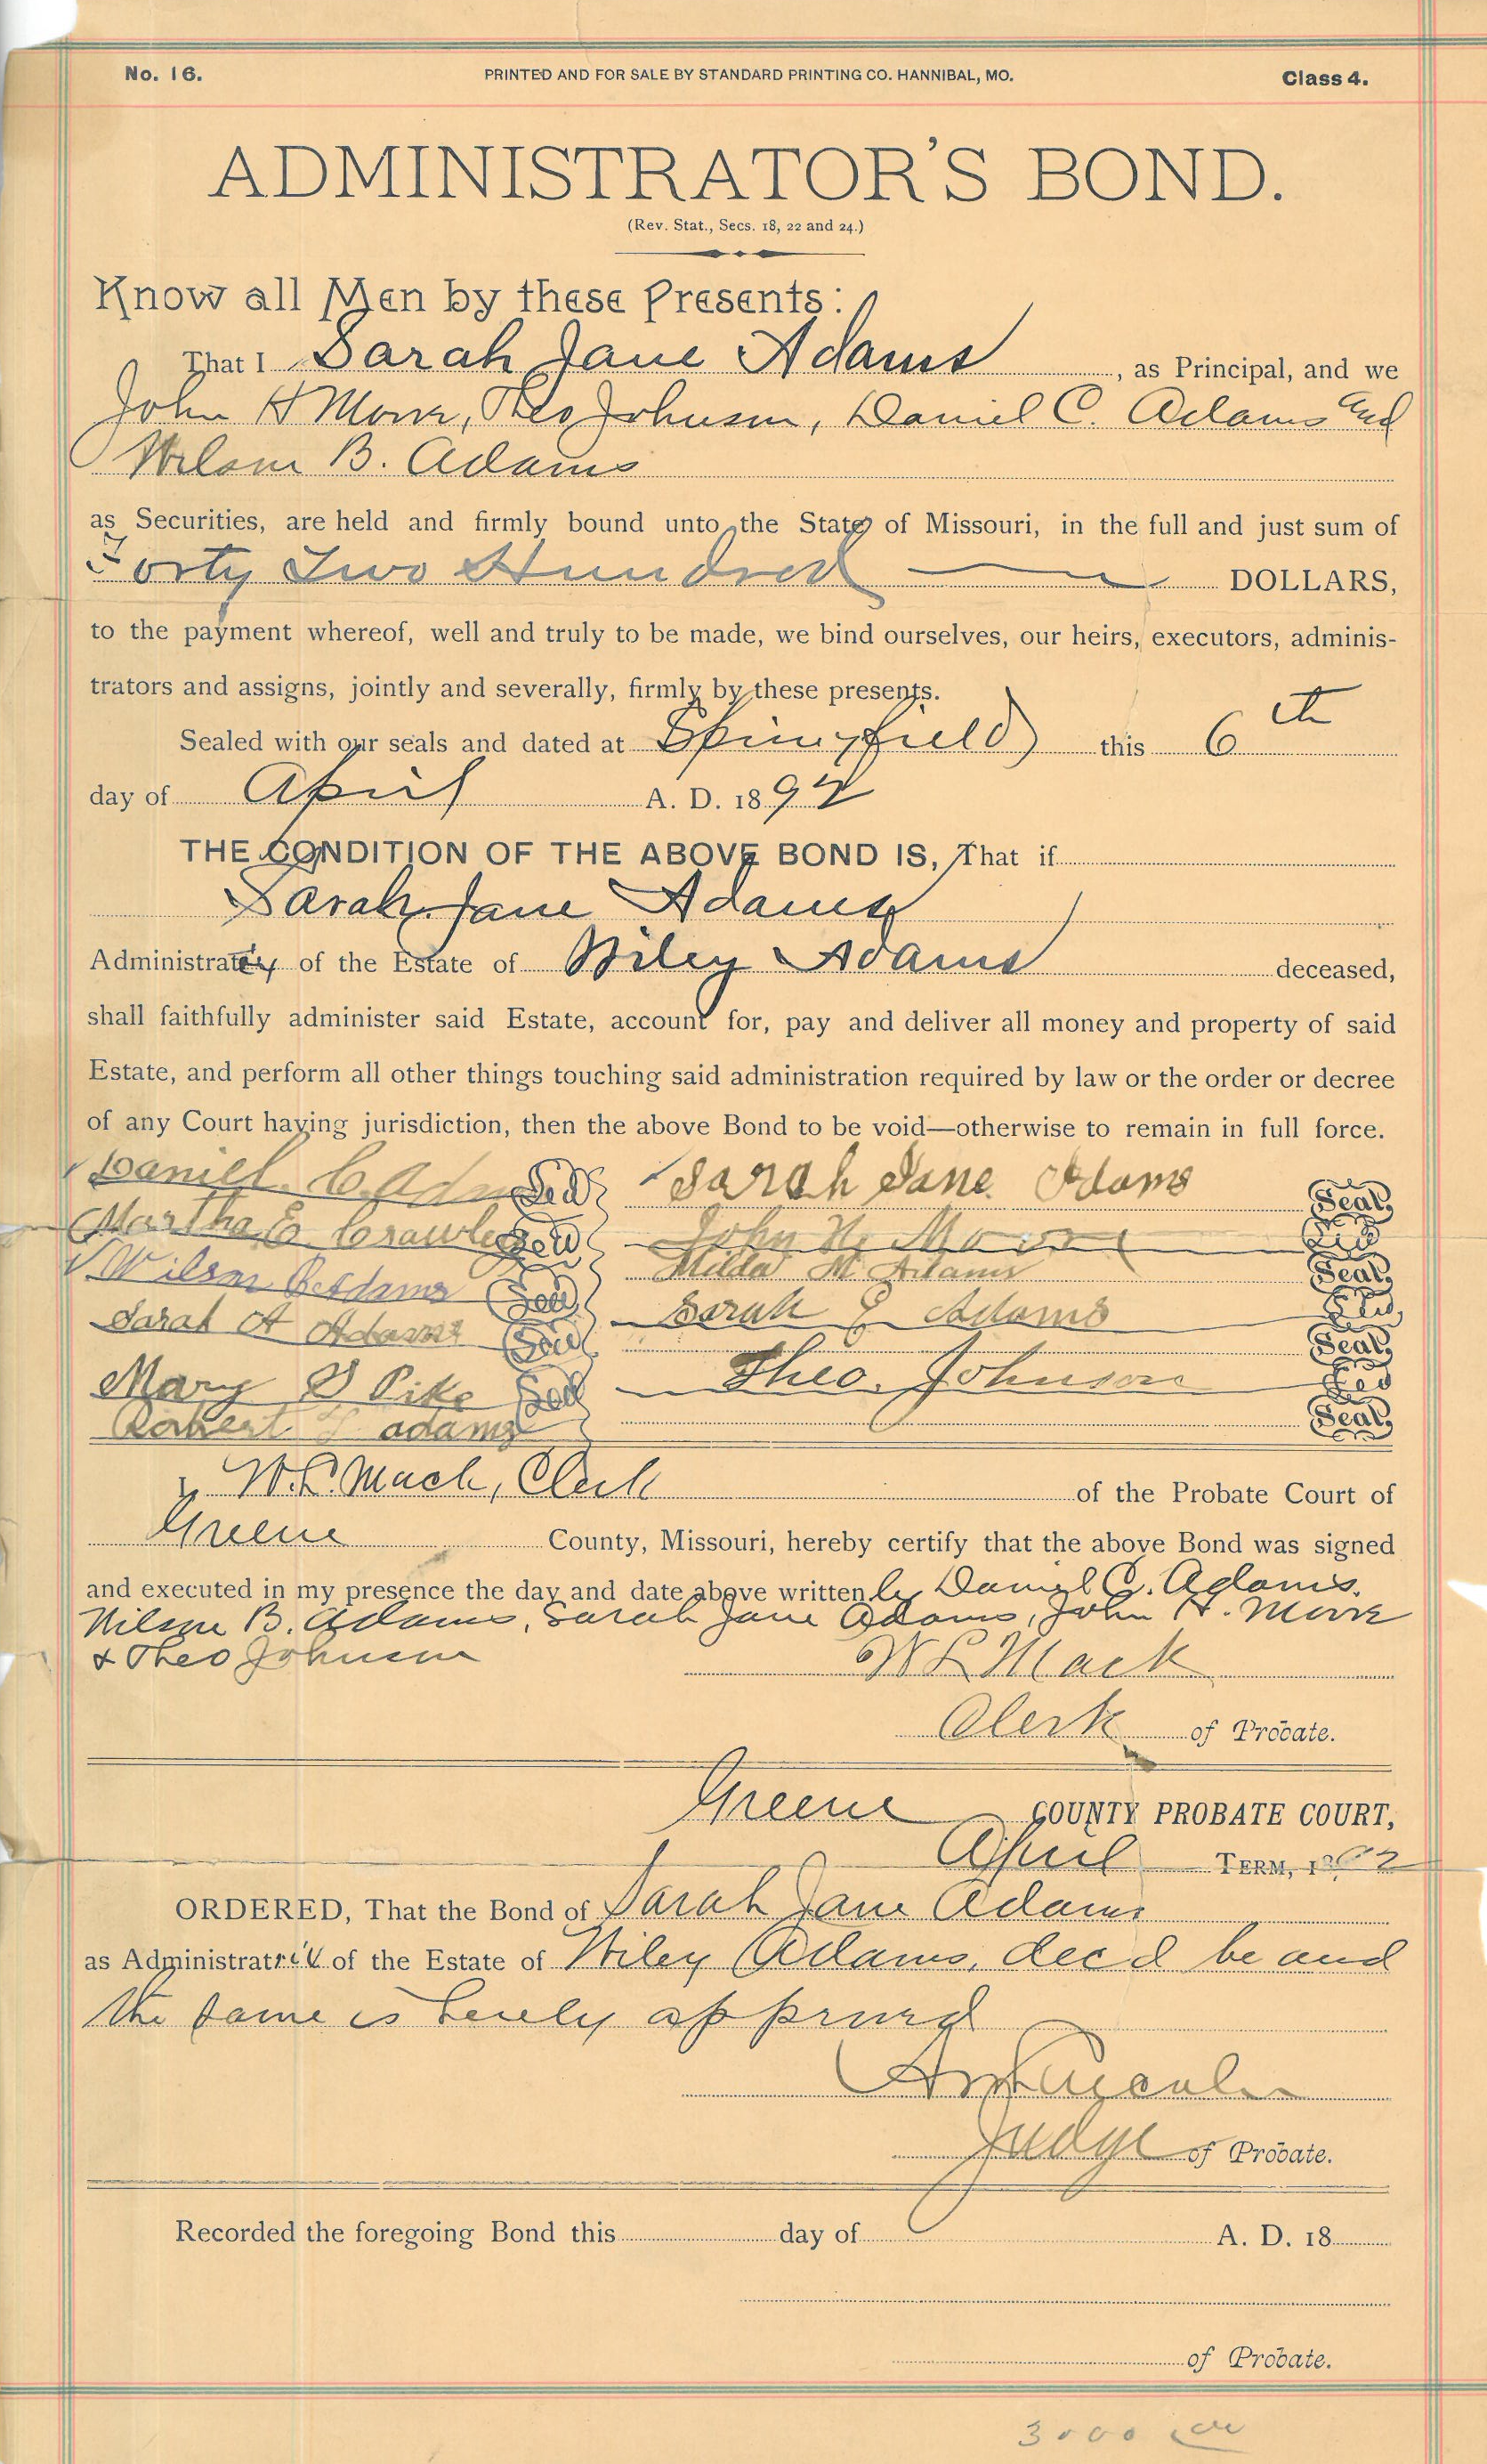 No. 16. PRINTED AND FOR SALE BY STANDARD PRINTING CO. HANNIBAL, MO. Class 4.
ADMINISTRATOR'S BOND.
(Rev. Stat., Secs. 18, 22 and 24.)
Know all Men by these Presents:
That I Sarah Jane Adams, as Principal, and we
John H Moore, Theo Johnson, Daniel C. Adams and
Wilson B. Adams
as Securities, are held and firmly bound unto the State of Missouri, in the full and just sum of
Forty Two Hundred DOLLARS,
to the payment whereof, well and truly to be made, we bind ourselves, our heirs, executors, adminis-
trators and assigns, jointly and severally, firmly by these presents.
Sealed with our seals and dated at Springfield this 6th
day of April A. D. 1892
THE CONDITION OF THE ABOVE BOND IS, That if
Sarah Jane Adams
Administratrix of the Estate of Wiley Adams deceased,
shall faithfully administer said Estate, account for, pay and deliver all money and property of said
Estate, and perform all other things touching said administration required by law or the order or decree
of any Court having jurisdiction, then the above Bond to be void—otherwise to remain in full force.
Daniel C. Adams Seal Sarah Jane Adams Seal
Martha E Crawley Seal John H. Moore Seal
Wilson B. Adams Seal Milda M Adams Seal
Sarah A Adams Seal Sarah E Adams Seal
Seal
Mary S Pike Seal Theo. Johnson Seal
Robert adams Seal
I, W. L. Mack, Clerk of the Probate Court of
Greene County, Missouri, hereby certify that the above Bond was signed
and executed in my presence the day and date above written by Daniel C. Adams.
Wilson B. Adams, Sarah Jane Adams, John H. Moore
& Theo Johnson W L Mack
Clerk of Probate.
Greene COUNTY PROBATE COURT,
April TERM, 1892
ORDERED, That the Bond of Sarah Jane Adams
as Administratrix of the Estate of Wiley Adams, dec'd be and
the same is hereby approved
Judge of Probate.
Recorded the foregoing Bond this day of A. D. 18
of Probate.
3000